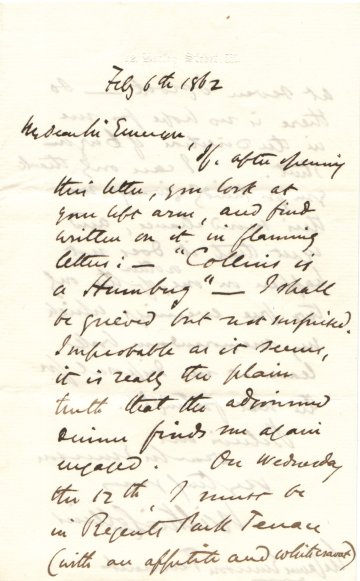 Feby 6th 1862
My dear Mr Emerson,
If, after opening
this letter, you look at
your left arm, and find
written on it in flaming
letters: — "Collins is
a Humbug" — I shall
be grieved but not surprised.
Improbable as it seems,
it is really the plain
truth that the adjourned
dinner finds me again
engaged. On Wednesday
the 12th, I must be
in Regents Park Terrace
(with an appetite and white cravat)